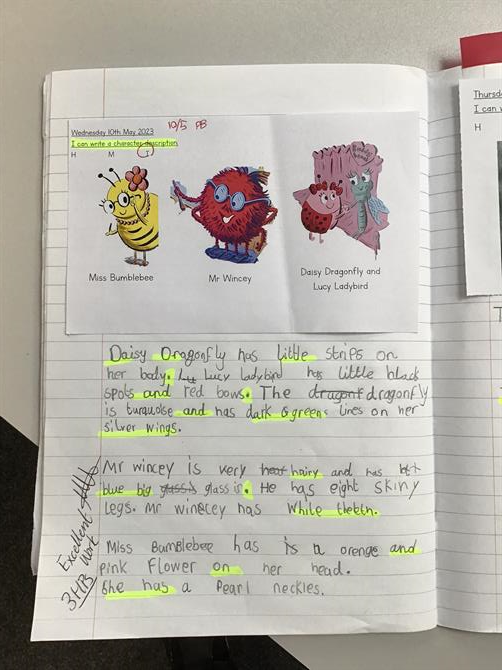 Wednesday 10th May 2023
10/5 PB
I can write a character description
H M I
Miss Bumblebee
Mr Wincey
Daisy Dragonfly and
Lucy Ladybird
Daisy Dragonfly has little strips on
her body. Lu Lucy Ladybird has little black
spots and red bows. The dragonf dragonfly
is turquoise and has dark & greens lines on her
silver wings.
Mr wincey is very hairy and has
blue big glass is. He has eight skiny
legs. Mr wincey has white teeth.
Miss Bumblebee has is a orenge and
pink flower on her head.
She has a Pearl neckles.
Excellent
Work
3HPs
Thursd
I can w
H
T